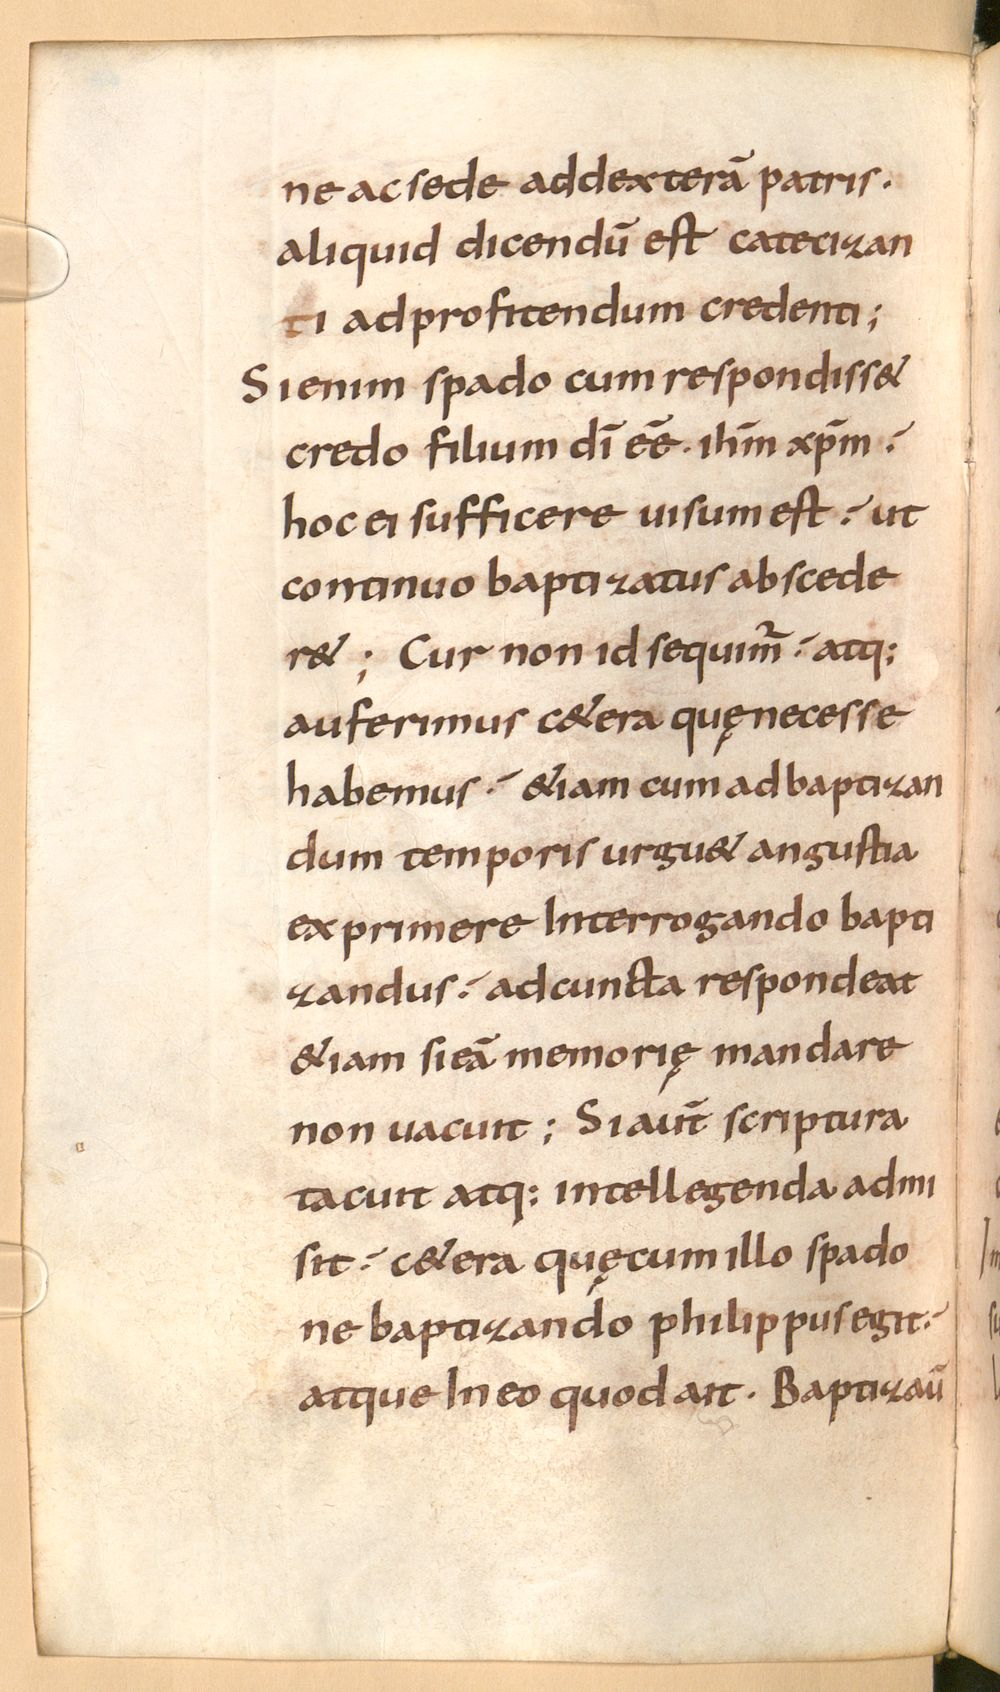 ne ac sede ad dexterā patris·
aliquid dicendū est catecizan
ti ad profitendum credenti;
Si enim spado cum respondiss&
credo filium dī eē· ihm̄ xp̄m·
hoc ei sufficere uisum est· ut
continuo baptizatus abscede
r&; Cur non id sequim̄· atq;
auferimus c&era quę necesse
habemus· &iam cum ad baptizan
dum temporis urgu& angustia
exprimere Interrogando bapti
zandus· ad cuncta respondeat
&iam si eā memorię mandare
non uacuit; Si aut̄ scriptura
tacuit atq; intellegenda admi
sit· c&era quę cum illo spado
ne baptizando philippus egit·
atque In eo quod ait· Baptizaū